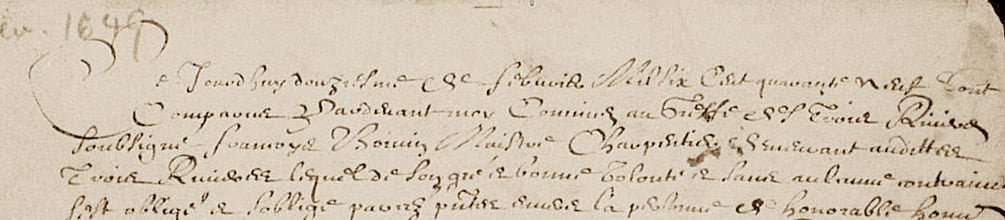 1649
Ce Jourdhuy douziesme de febvrier Mil six Cent quarante neuf sont
Comparus Pardevant moy Commis au Greffe des Trois Rivieres
soubsigné francoys Boivin Maistre Charpentier demeurant audittes
Trois Rivieres lequel de son gré & bonne volonté & sans aulcune contraincte
sest obligé & soblige par ces pntes envers la personne de honorable homme